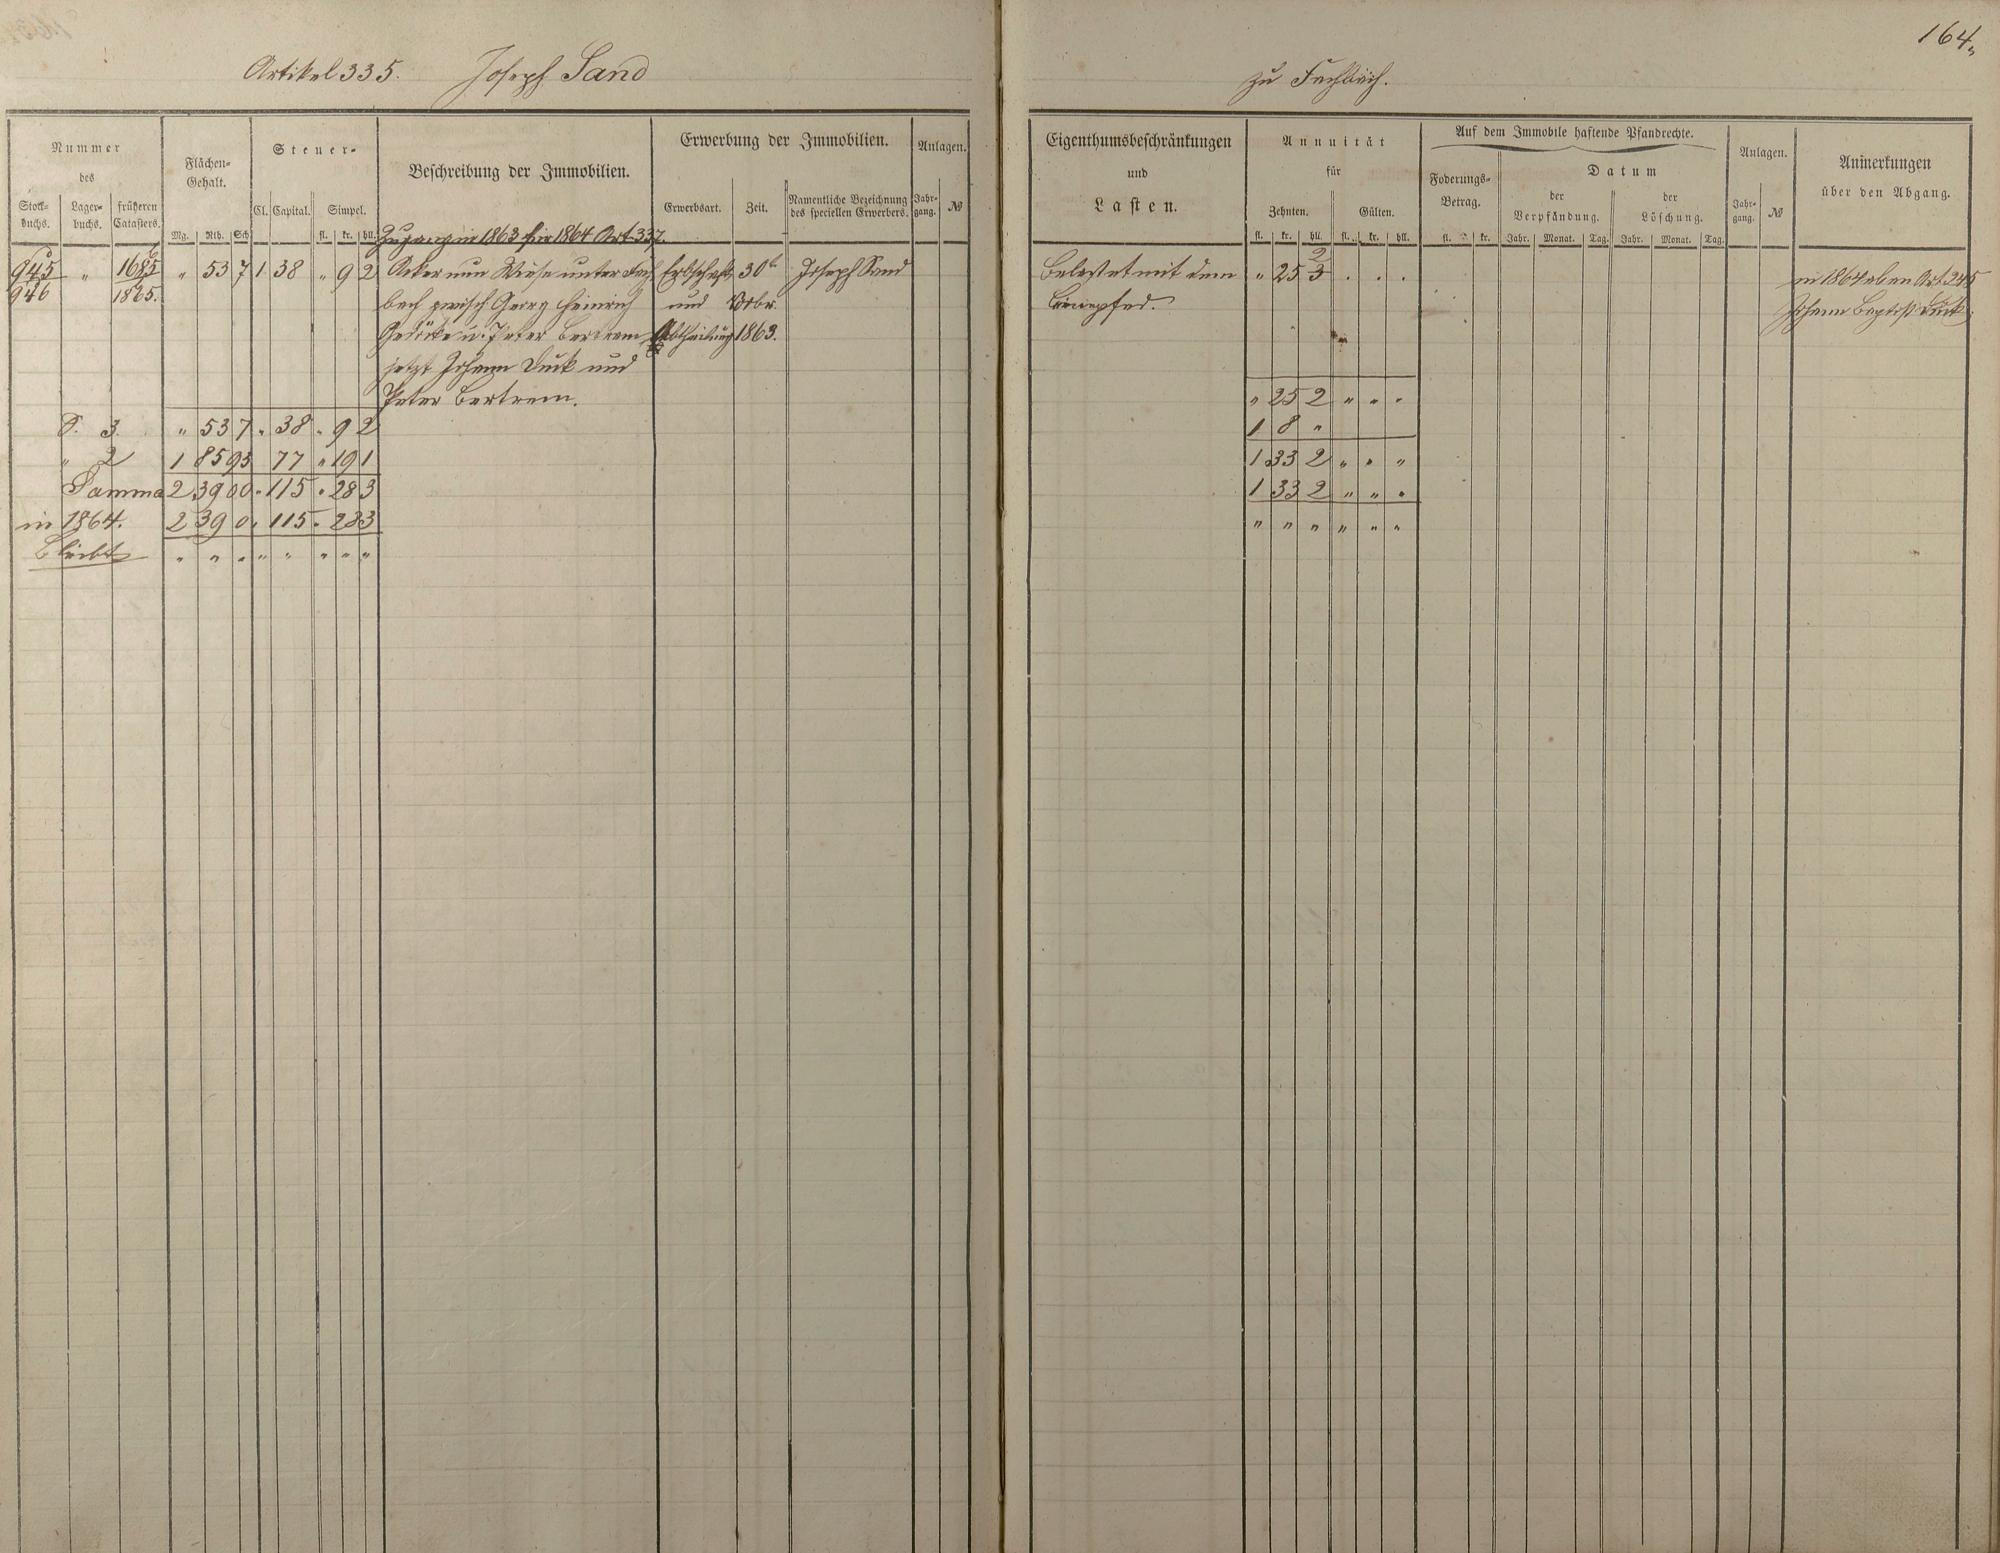 164.
Artikel 335. Joseph Sand
zu Fachbach.
Nummer
des
Stock-
buchs.
Lager-
buchs.
früheren
Catasters.
Flächen-
Gehalt.
Mg. Rth. Sch
Steuer-
Cl. Capital. Simpel.
fl. kr. hll.
Beschreibung der Immobilien.
Erwerbung der Immobilien.
Erwerbsart. Zeit.
Namentliche Bezeichnung
des speciellen Erwerbers.
Anlagen.
Jahr-
gang.
№
Zugang in 1863 für 1864 Art. 337.
945 " 1685 " 53 7 1 38 " 9 2 Acker nun Wiese unter Fach- Erbschaft 30t Joseph Sand
946 1865. bach zwisch Georg Heinrich und Vbr.
u. Peter Bertram Abtheilung 1863.
jetzt Johann und
Peter Bertram.
S. 3. " 53 7 " 38 " 9 2
" 2 1 85 93 77 " 19 1
Summa 2 39 00 " 115 " 28 3
in 1864. 2 39 0 " 115 " 28 3
Bleibt " " " " " " " "
Eigenthumsbeschränkungen
und
Lasten.
Annuität
für
Zehnten. Gülten.
fl. kr. hll. fl. kr. hll.
Auf dem Immobile haftende Pfandrechte.
Foderungs-
Betrag.
fl. kr.
Datum
der
Verpfändung.
der
Löschung.
Jahr. Monat. Tag. Jahr. Monat. Tag.
Anlagen.
Jahr-
gang.
№
Anmerkungen
über den Abgang.
Belastet mit dem " 25 2 . . . in 1864 Art 245
Leinepfad. Johann Baptist
" 25 2 " " "
1 8 "
1 33 2 " " "
1 33 2 " " "
" " " " " "